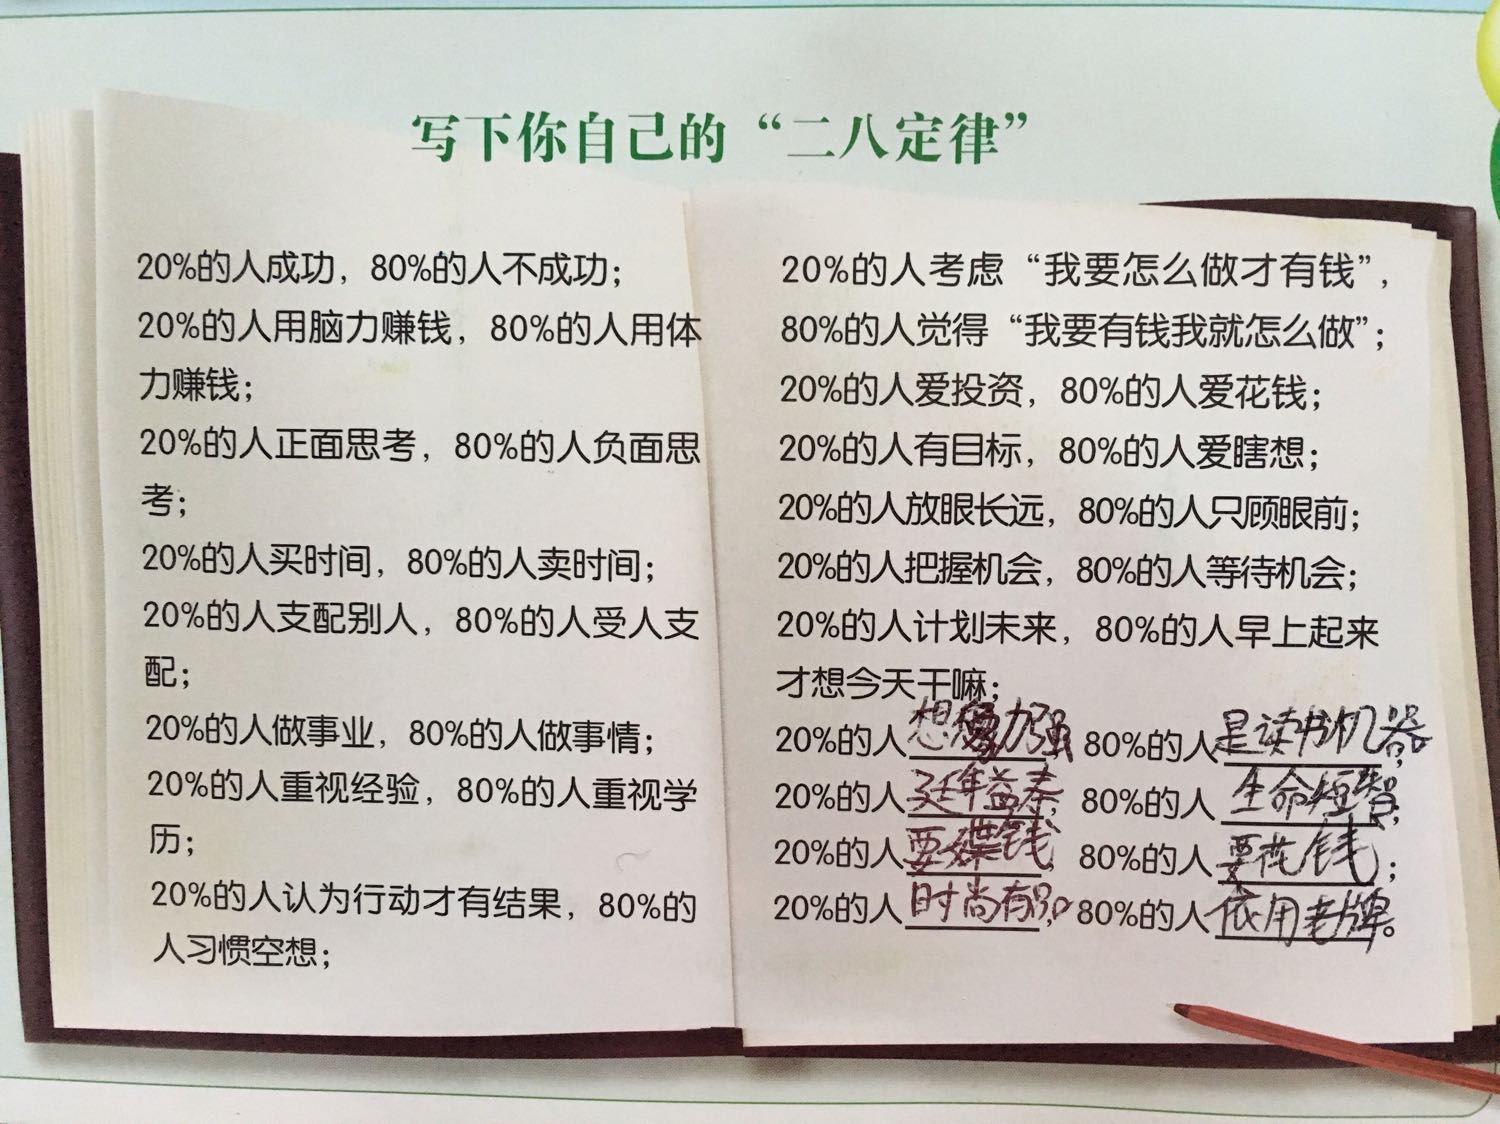 写下你自己的“二八定律”
20%的人成功，80%的人不成功；
20%的人用脑力赚钱，80%的人用体
力赚钱；
20%的人正面思考，80%的人负面思
考；
20%的人买时间，80%的人卖时间；
20%的人支配别人，80%的人受人支
配；
20%的人做事业，80%的人做事情；
20%的人重视经验，80%的人重视学
历；
20%的人认为行动才有结果，80%的
人习惯空想；
20%的人考虑“我要怎么做才有钱”，
80%的人觉得“我要有钱我就怎么做”；
20%的人爱投资，80%的人爱花钱；
20%的人有目标，80%的人爱瞎想；
20%的人放眼长远，80%的人只顾眼前；
20%的人把握机会，80%的人等待机会；
20%的人计划未来，80%的人早上起来
才想今天干嘛；
20%的人想像力强 80%的人是读书机器；
20%的人延年益寿，80%的人生命短暂；
20%的人要赚钱，80%的人要花钱；
20%的人时尚有品，80%的人依用老牌。